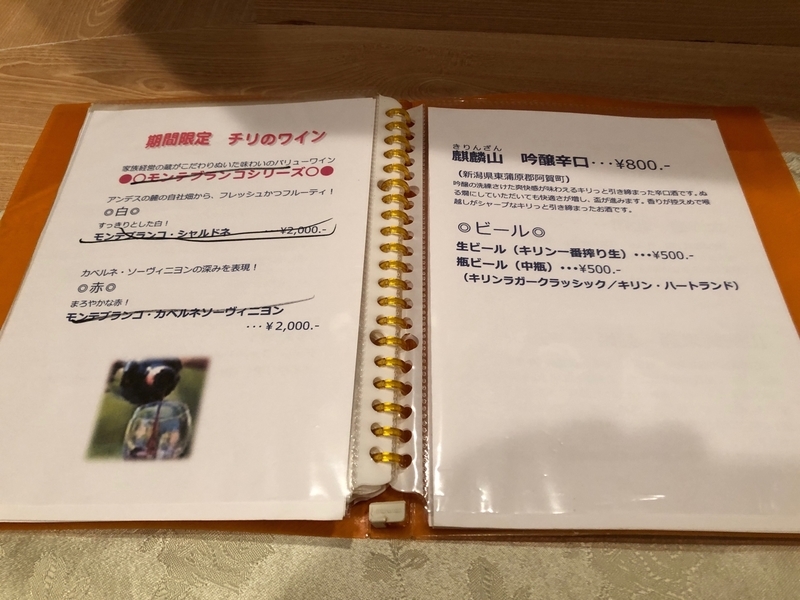 期間限定 チリのワイン
家族経営の蔵がこだわりぬいた味わいのバリューワイン
●〇モンテブランコシリーズ〇●
アンデスの麓の自社畑から、フレッシュかつフルーティ！
◎白◎
すっきりとした白！
モンテブランコ・シャルドネ ･･･¥2,000.-
カベルネ・ソーヴィニヨンの深みを表現！
◎赤◎
まろやかな赤！
モンテブランコ・カベルネソーヴィニヨン
･･･¥2,000.-
きりんざん
麒麟山 吟醸辛口･･･¥800.-
(新潟県東蒲原郡阿賀町)
吟醸の洗練さけた爽快感が味わえるキリっと引き締まった辛口酒です。ぬ
る燗にしていただいても快適さが増し、盃が進みます。香りが控えめで喉
越しがシャープなキリっと引き締まったお酒です。
◎ビール◎
生ビール（キリン一番搾り生）･･･¥500.-
瓶ビール（中瓶）･･･¥500.-
（キリンラガークラッシック／キリン・ハートランド）